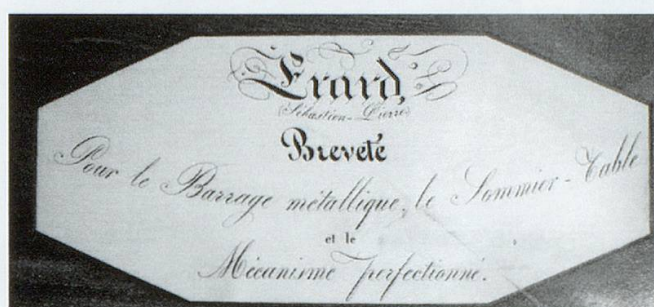 Erard,
(Sébastien-Pierre)
Breveté
Pour le Barrage métallique, le Sommier-Table
et le
Mécanisme perfectionné.